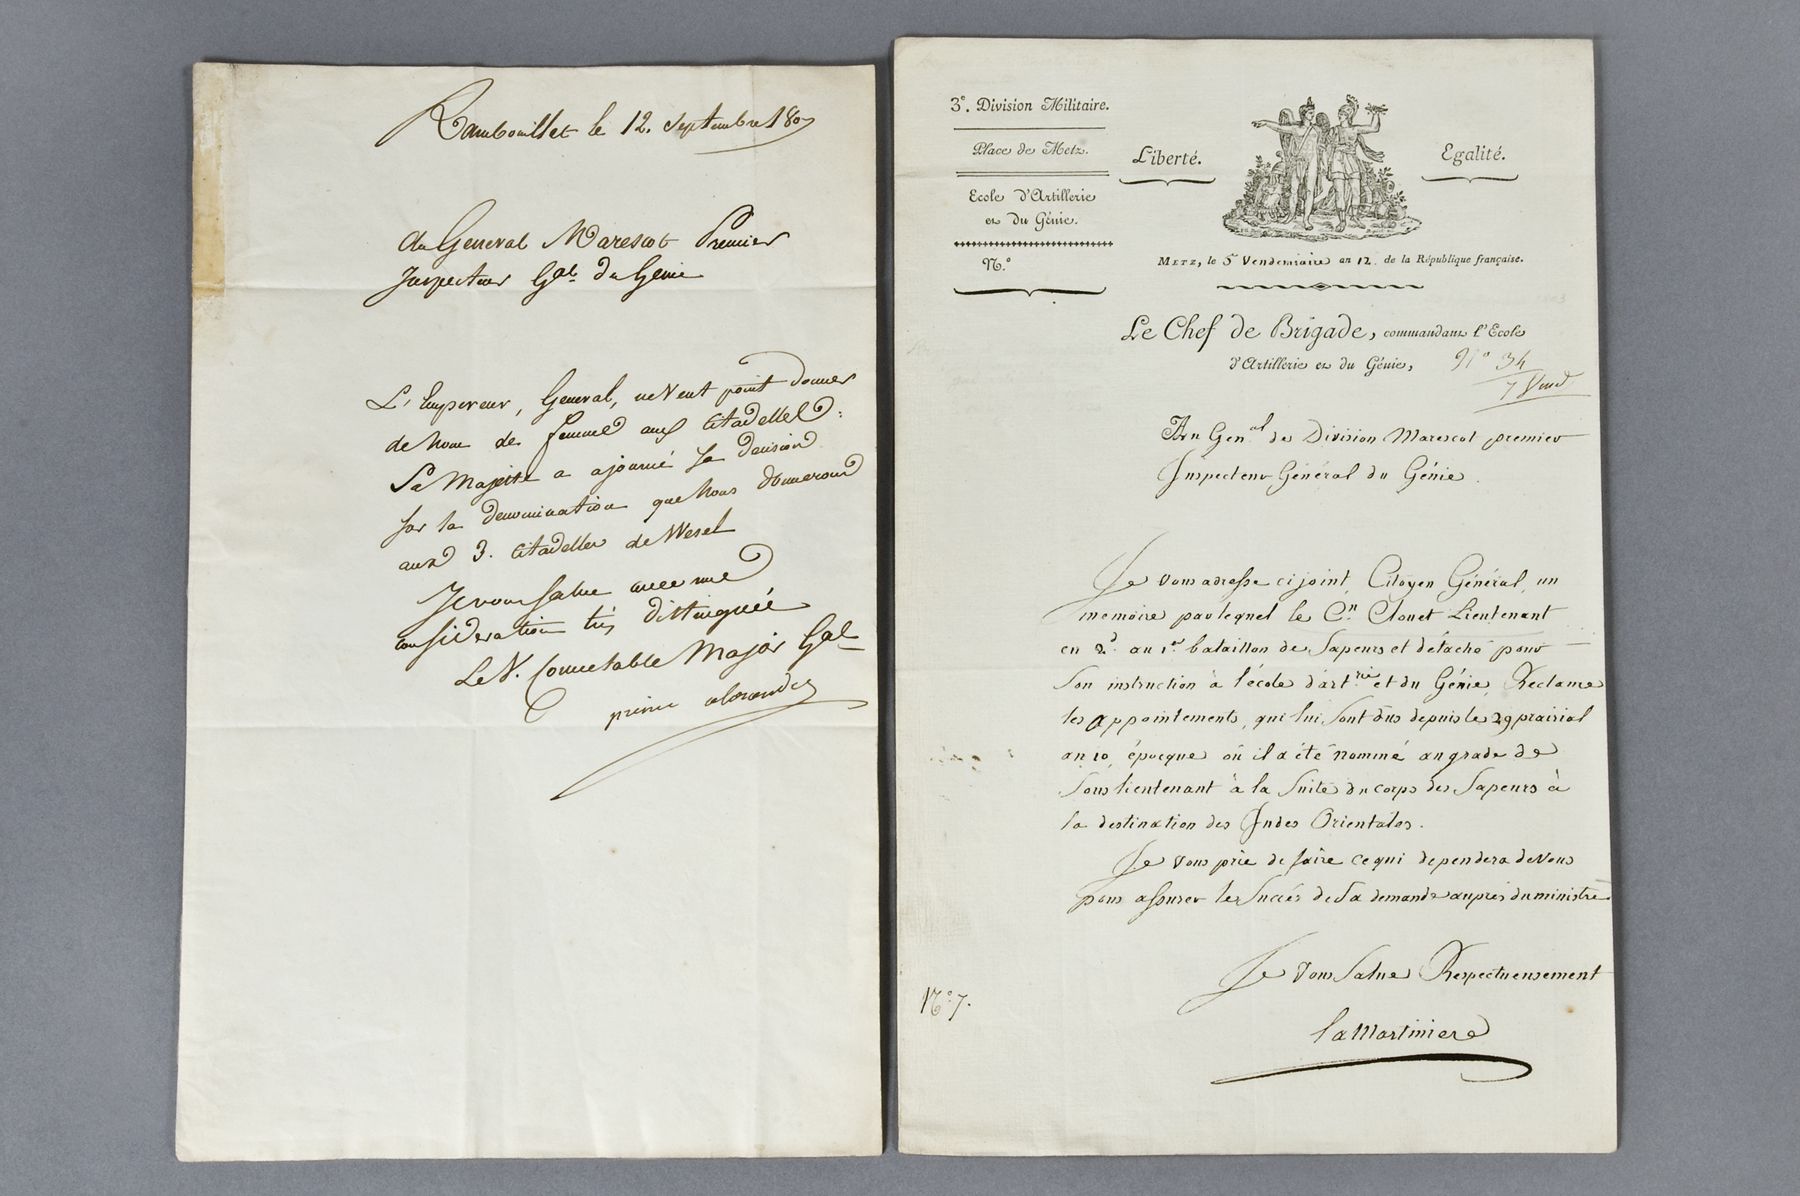 Rambouillet le 12. Septembre 1807
Au General Marescot Premier
Inspecteur Gal. du Genie
L'Empereur, General, ne Veut point donner
de nom de femme aux Citadelles:
Sa Majesté a ajourné sa decision
sur la denomination que nous donnerons
aux 3. Citadelles de Wesel
Je vous salue avec une
consideration très distinguée
Le V. Connetable Major Gal
prince alexandre
3e. Division Militaire.
Place de Metz.
Ecole d'Artillerie
et du Génie.
N.o
Liberté.
Egalité.
METZ, le 5 Vendemiaire an 12 de la République française.
Le Chef de Brigade, commandant l'Ecole
d'Artillerie et du Génie,
No 34
7 Vend
Au Gen.al de Division Marescot premier
Inspecteur Général du Génie.
Je vous adresse ci joint, Citoyen Général, un
memoire par lequel le Cn. Clouet Lieutenant
en 2d. au 1er bataillon de Sapeurs et détaché pour
Son instruction à l'école d'art.rie et du Génie, Réclame
les appointements, qui lui sont dus depuis le 29 prairial
an 10, épocque où il a été nommé au grade de
Sous lieutenant à la Suite du corps des Sapeurs à
la destination des Indes Orientales.
Je vous prie de faire ce qui dependera de Vous
pour assurer le Succès de Sa demande auprès du ministre
Je Vous Salue Respectueusement
laMartiniere
No. 7.